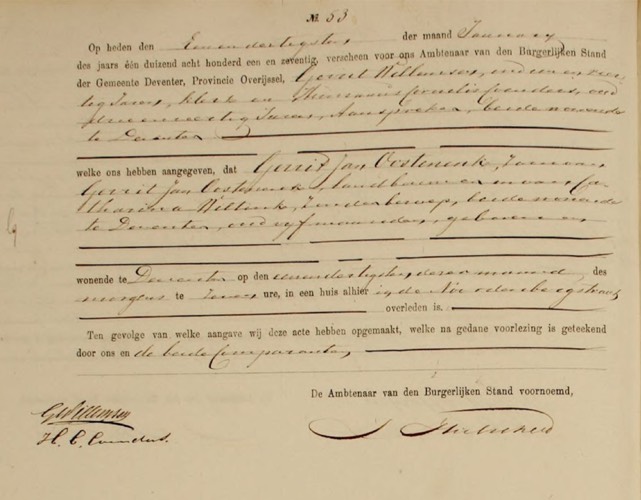 № 53
Op heden den Eenendertigsten der maand January
des jaars één duizend acht honderd een en zeventig, verscheen voor ons Ambtenaar van den Burgerlijken Stand
der Gemeente Deventer, Provincie Overijssel, Gerrit Willemsen, oud
tig Jaren, klerk en Cornelis oud
Jaren, Aanspreker, beide wonende
te Deventer
welke ons hebben aangegeven, dat Gerrit Jan Oostenenk, Zoon van
Gerrit Jan Oostenenk, landbouwer en van Ca
tharina Wiltink, zonder beroep, beide wonende
te Deventer, oud vyf maanden, geboren en
wonende te Deventer op den eenendertigsten dezer maand des
morgens te ure, in een huis alhier in de Noordenbergstraat
overleden is.
Ten gevolge van welke aangave wij deze acte hebben opgemaakt, welke na gedane voorlezing is geteekend
door ons en de beide Comparanten
De Ambtenaar van den Burgerlijken Stand voornoemd,
GWillemsen
H. C.